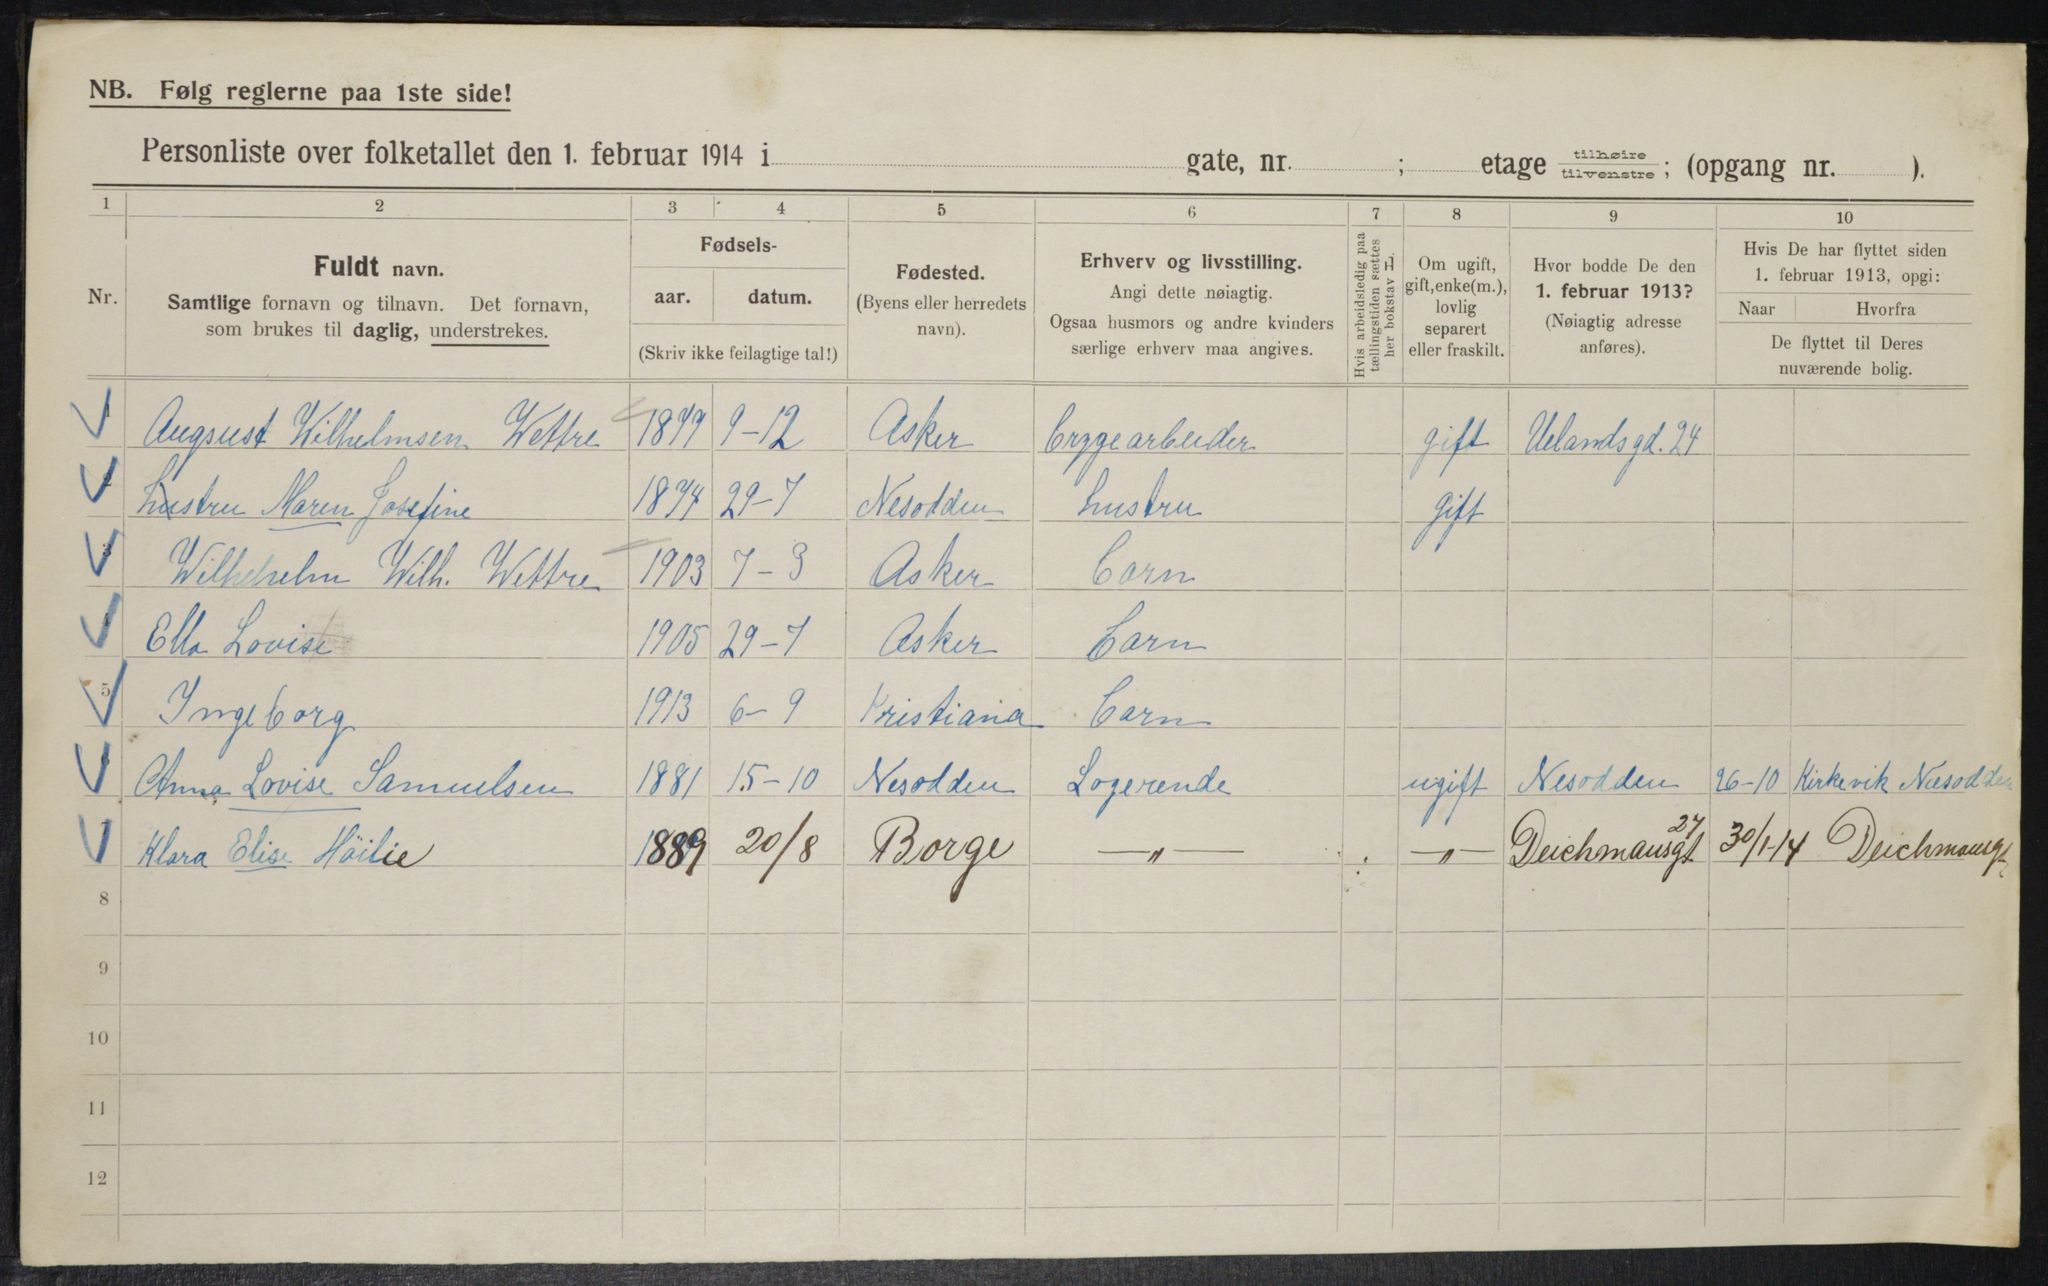 NB. Følg reglerne paa 1ste side!
Personliste over folketallet den 1. februar 1914 i gate, nr. ; etage tilhøire tilvenstre ; (opgang nr. ).
1 2 3 4 5 6 7 8 9 10
Nr.
Fuldt navn.
Samtlige fornavn og tilnavn. Det fornavn,
som brukes til daglig, understrekes.
Fødsels-
aar. datum.
(Skriv ikke feilagtige tal!)
Fødested.
(Byens eller herredets
navn).
Erhverv og livsstilling.
Angi dette nøiagtig.
Ogsaa husmors og andre kvinders
særlige erhverv maa angives.
Hvis arbeidsledig paa
tællingstiden sættes
her bokstav L.
Om ugift,
gift, enke(m.),
lovlig
separert
eller fraskilt.
Hvor bodde De den
1. februar 1913?
(Nøiagtig adresse
anføres).
Hvis De har flyttet siden
1. februar 1913, opgi:
Naar Hvorfra
De flyttet til Deres
nuværende bolig.
1 Augsust Wilhelmsen Wettre 9-12 Asker Bryggearbeider gift Uelandsgd. 24
2 hustru Maren Josefine 29-7 Nesodden hustru gift
3 Wilhehelm Wilh. Wettre 1903 7-3 Asker Barn
4 Ella Lovise 1905 29-7 Asker Barn
5 Ingeborg 1913 6-9 Kristiania Barn
6 Anna Lovise Samuelsen 1881 15-10 Nesodden Logerende ugift Nesodden 26-10 Kirkevik Næsodden
7 Klara Elise Höilie 1889 20/8 Borge —„— —„— Deichmansgt 27 30/1-14 Deichmansgt
8
9
10
11
12